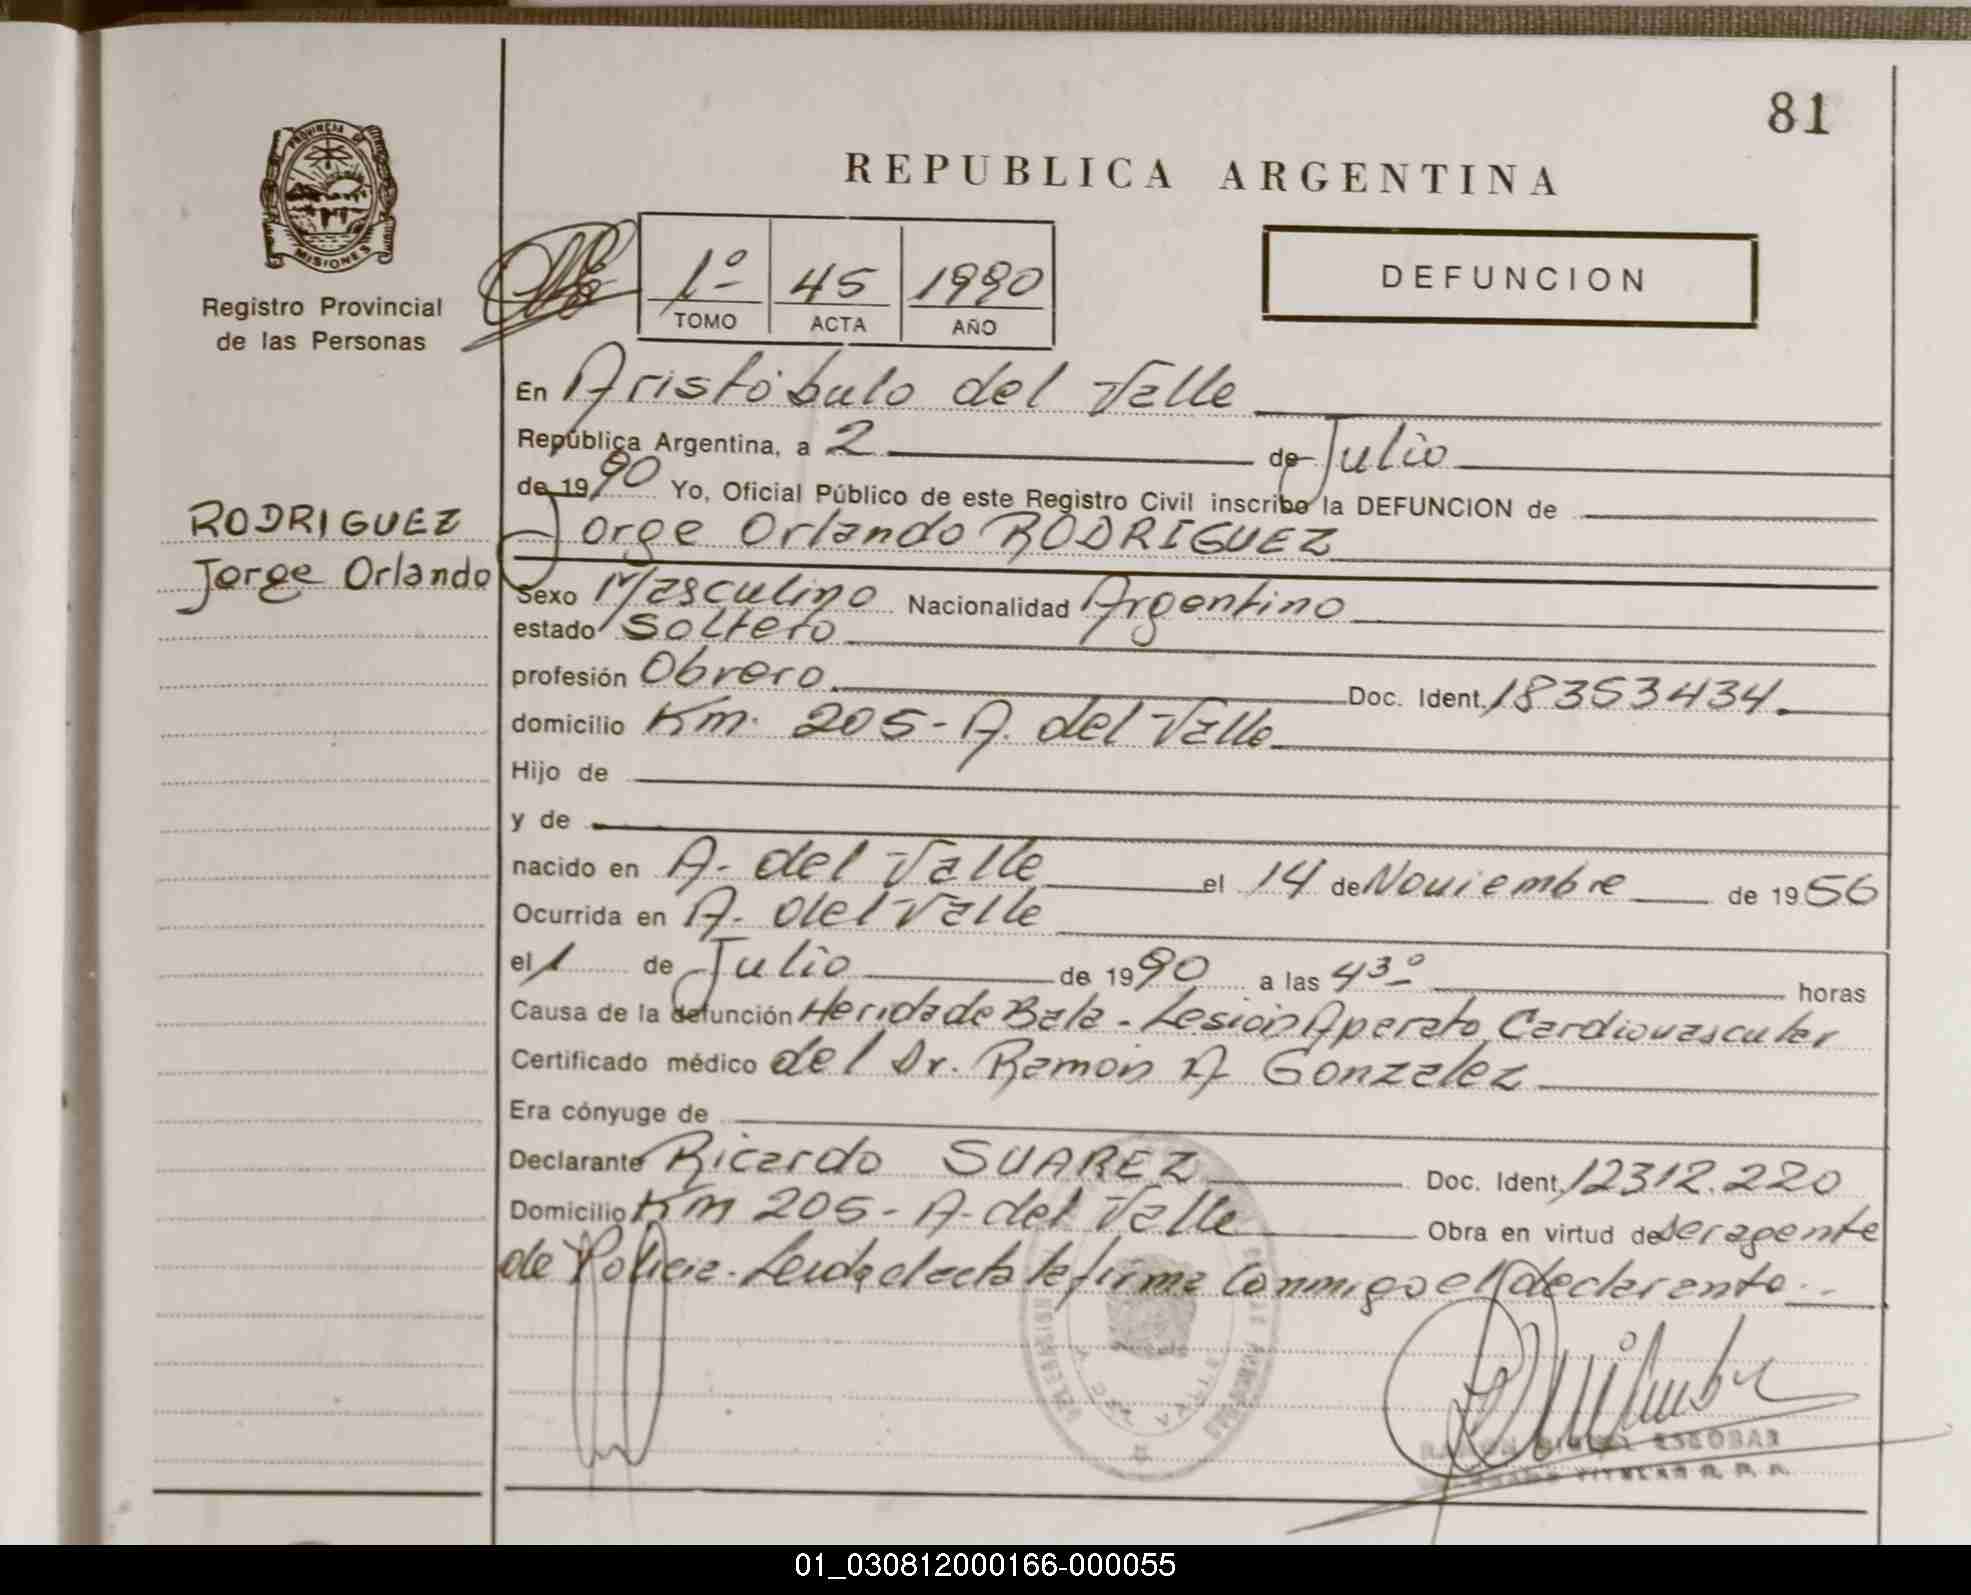 81
REPUBLICA ARGENTINA
PROVINCIA DE
MISIONES
Registro Provincial
de las Personas
1º 45 1990
TOMO ACTA AÑO
DEFUNCION
En Aristóbulo del Valle
República Argentina, a 2 de Julio
de 1990 Yo, Oficial Público de este Registro Civil inscribo la DEFUNCION de
RODRIGUEZ
Jorge Orlando
Jorge Orlando RODRIGUEZ
Sexo Masculino Nacionalidad Argentino
estado Soltero
profesión Obrero Doc. Ident. 18353434.
domicilio Km. 205 - A. del Valle
Hijo de
y de
nacido en A. del Valle el 14 de Noviembre de 1956
Ocurrida en A. del Valle
el 1 de Julio de 1990 a las 4 3º horas
Causa de la defunción Herida de Bala - Lesión Aparato Cardiovascular
Certificado médico del Dr. Ramón A Gonzalez
Era cónyuge de
Declarante Ricardo SUAREZ Doc. Ident. 12312.220
Domicilio Km 205 - A. del Valle Obra en virtud de ser agente
de Policia. Leida el acta la firma conmigo el declarante
ESCOBAR
01_030812000166-000055